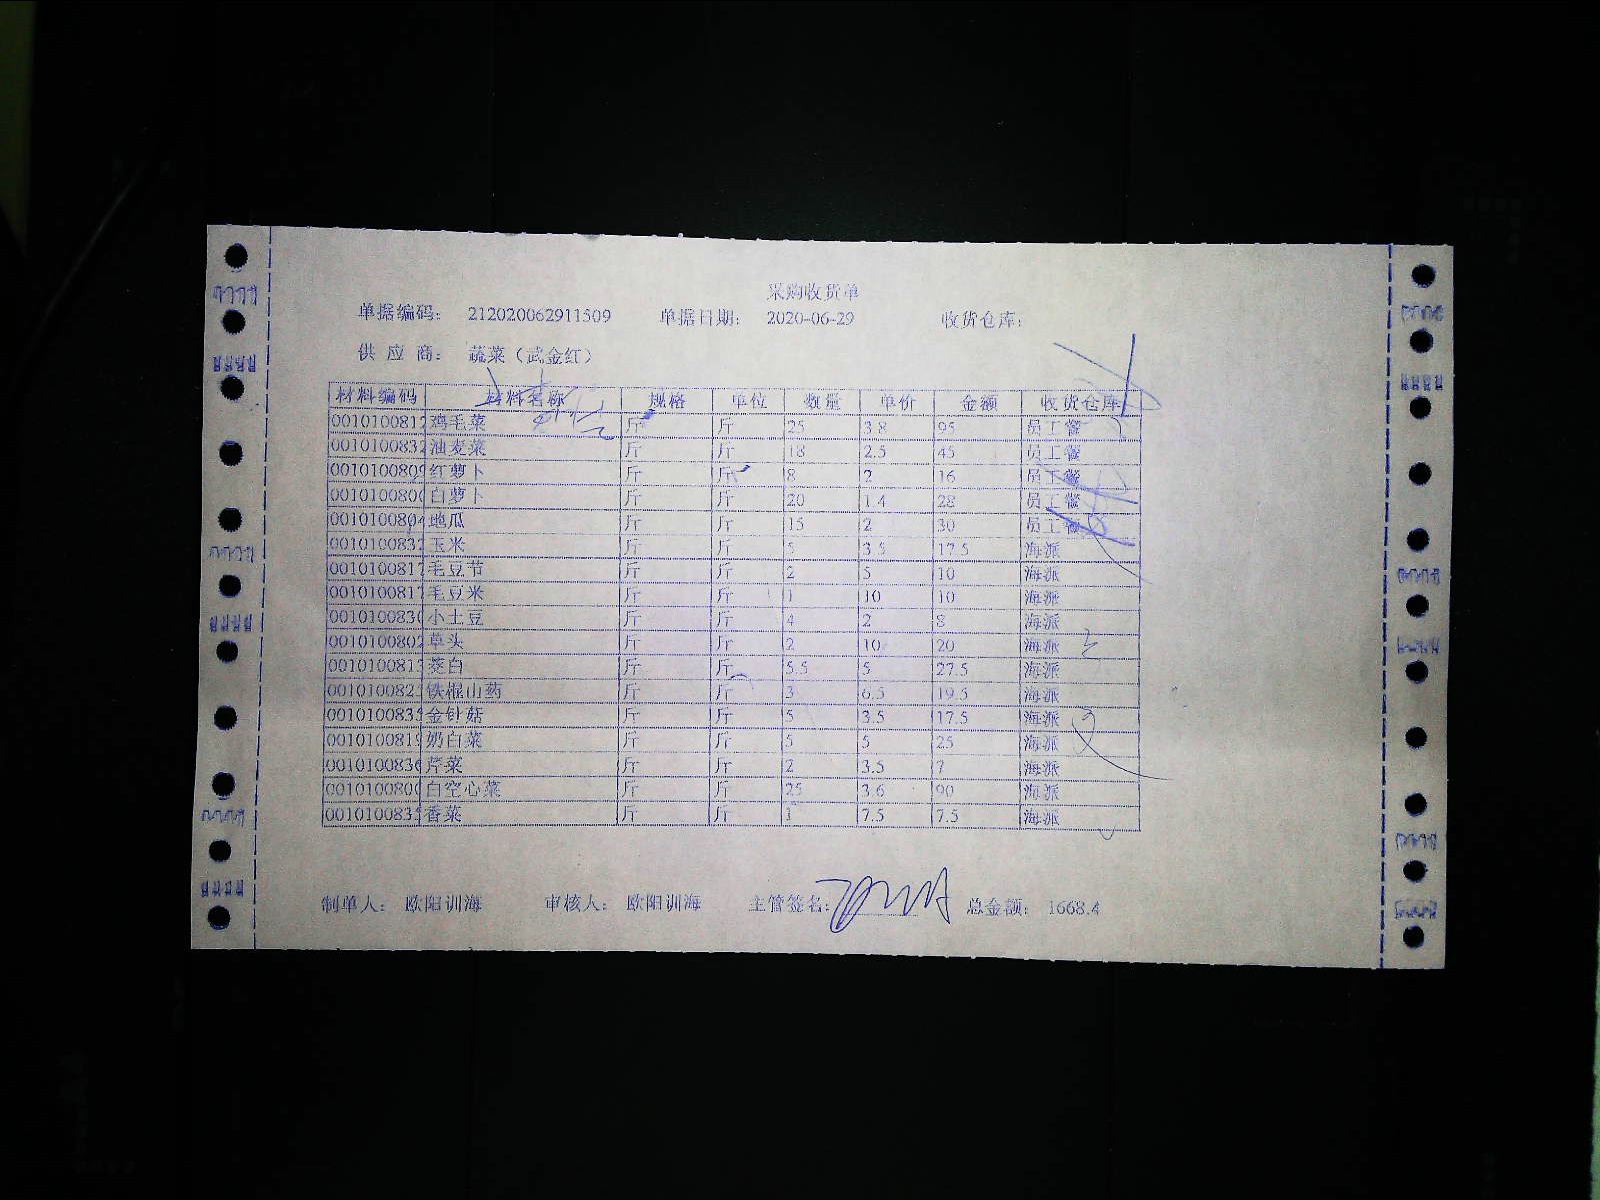 采购收货单
单据编码： 212020062911509 单据日期： 2020-06-29 收货仓库：
供 应 商： 蔬菜（武金红）
材料编码 材料名称 规格 单位 数量 单价 金额 收货仓库
0010100812 鸡毛菜 斤 斤 25 3.8 95 员工餐
0010100832 油麦菜 斤 斤 18 2.5 45 员工餐
0010100809 红萝卜 斤 斤 8 2 16 员工餐
0010100800 白萝卜 斤 斤 20 1.4 28 员工餐
0010100804 地瓜 斤 斤 15 2 30 员工餐
0010100832 玉米 斤 斤 5 3.5 17.5 海派
0010100817 毛豆节 斤 斤 2 5 10 海派
0010100817 毛豆米 斤 斤 1 10 10 海派
0010100830 小土豆 斤 斤 4 2 8 海派
0010100802 草头 斤 斤 2 10 20 海派
0010100815 茭白 斤 斤 5.5 5 27.5 海派
001010082 铁棍山药 斤 斤 3 6.5 19.5 海派
0010100835 金针菇 斤 斤 5 3.5 17.5 海派
0010100819 奶白菜 斤 斤 5 5 25 海派
0010100836 芹菜 斤 斤 2 3.5 7 海派
0010100800 白空心菜 斤 斤 25 3.6 90 海派
0010100835 香菜 斤 斤 1 7.5 7.5 海派
制单人： 欧阳训海 审核人： 欧阳训海 主管签名： 总金额： 1668.4